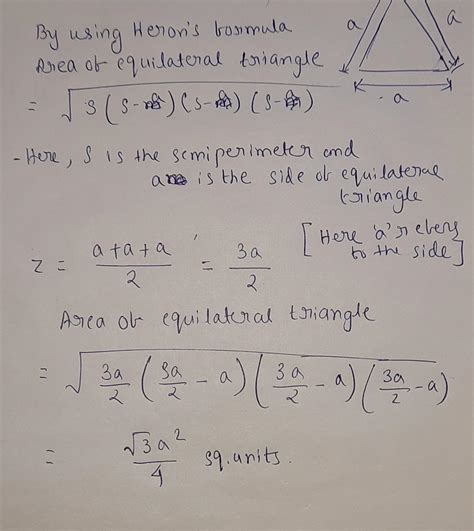 a
a
a
By using Heron's formula
Area of equilateral triangle
= √S(S-a)(S-a)(S-a)
- Here, S is the semiperimeter and
a is the side of equilateral
triangle
[Here 'a' refers
to the side]
z = a+a+a/2 = 3a/2
Area of equilateral triangle
= √3a/2 (3a/2 - a) (3a/2 - a) (3a/2 - a)
= √3a²/4 sq.units.